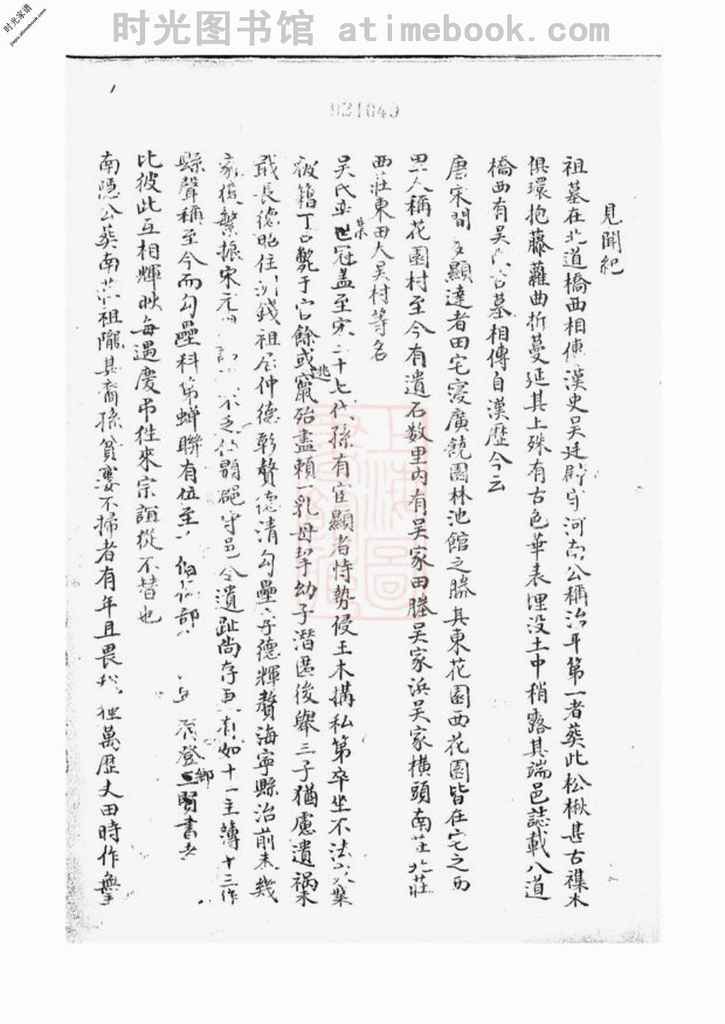 时光图书馆 atimebook.com
时光家谱
jiapu.atimebook.com
021649
見聞紀
祖墓在北道橋西相傳漢史吳廷尉守河南公稱治平第一者葬此松楸甚古襍木
俱環抱藤蘿曲折蔓延其上殊有古色華表埋没土中稍露其端邑誌載八道
橋西有吳氏古墓相傳自漢歷今云
唐宋間多顯達者田宅寖廣饒園林池館之勝其東花園西花園皆在宅之西
里人稱花園村至今有遺石数里内有吳家田塍吳家浜吳家橫頭南荘北莊
西莊東田大吳村等名
吳氏世冠盖至宋二十七代孫有宦顯者恃勢侵王木搆私第卒坐不法
被籍丁口斃于官餘或逃竄殆盡賴一乳母挈幼子潛匿後舉三子猶慮遺禍
最長德昶住錢祖居仲德彰贅德清勾壘季德輝贅海寧縣治前未幾
家復繁振宋元 不乏 守邑令遺趾尚存 如十一主簿十三作
縣聲稱至今而勾壘科第蟬聯有位至 部 登三鄉賢書者
比彼此互相輝映每遇慶弔往來宗誼從不替也
南隱公葬南 祖隴其裔孫貧寠不掃者有年且畏 萬歷丈田時作無